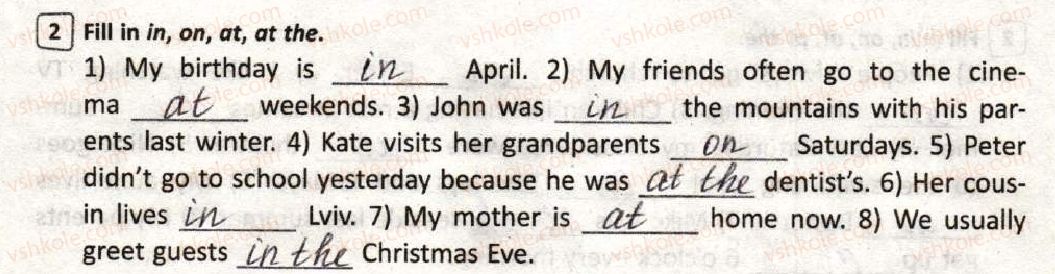 2 Fill in in, on, at, at the.
1) My birthday is in April. 2) My friends often go to the cine-
ma at weekends. 3) John was in the mountains with his par-
ents last winter. 4) Kate visits her grandparents on Saturdays. 5) Peter
didn't go to school yesterday because he was at the dentist's. 6) Her cous-
in lives in Lviv. 7) My mother is at home now. 8) We usually
greet guests in the Christmas Eve.